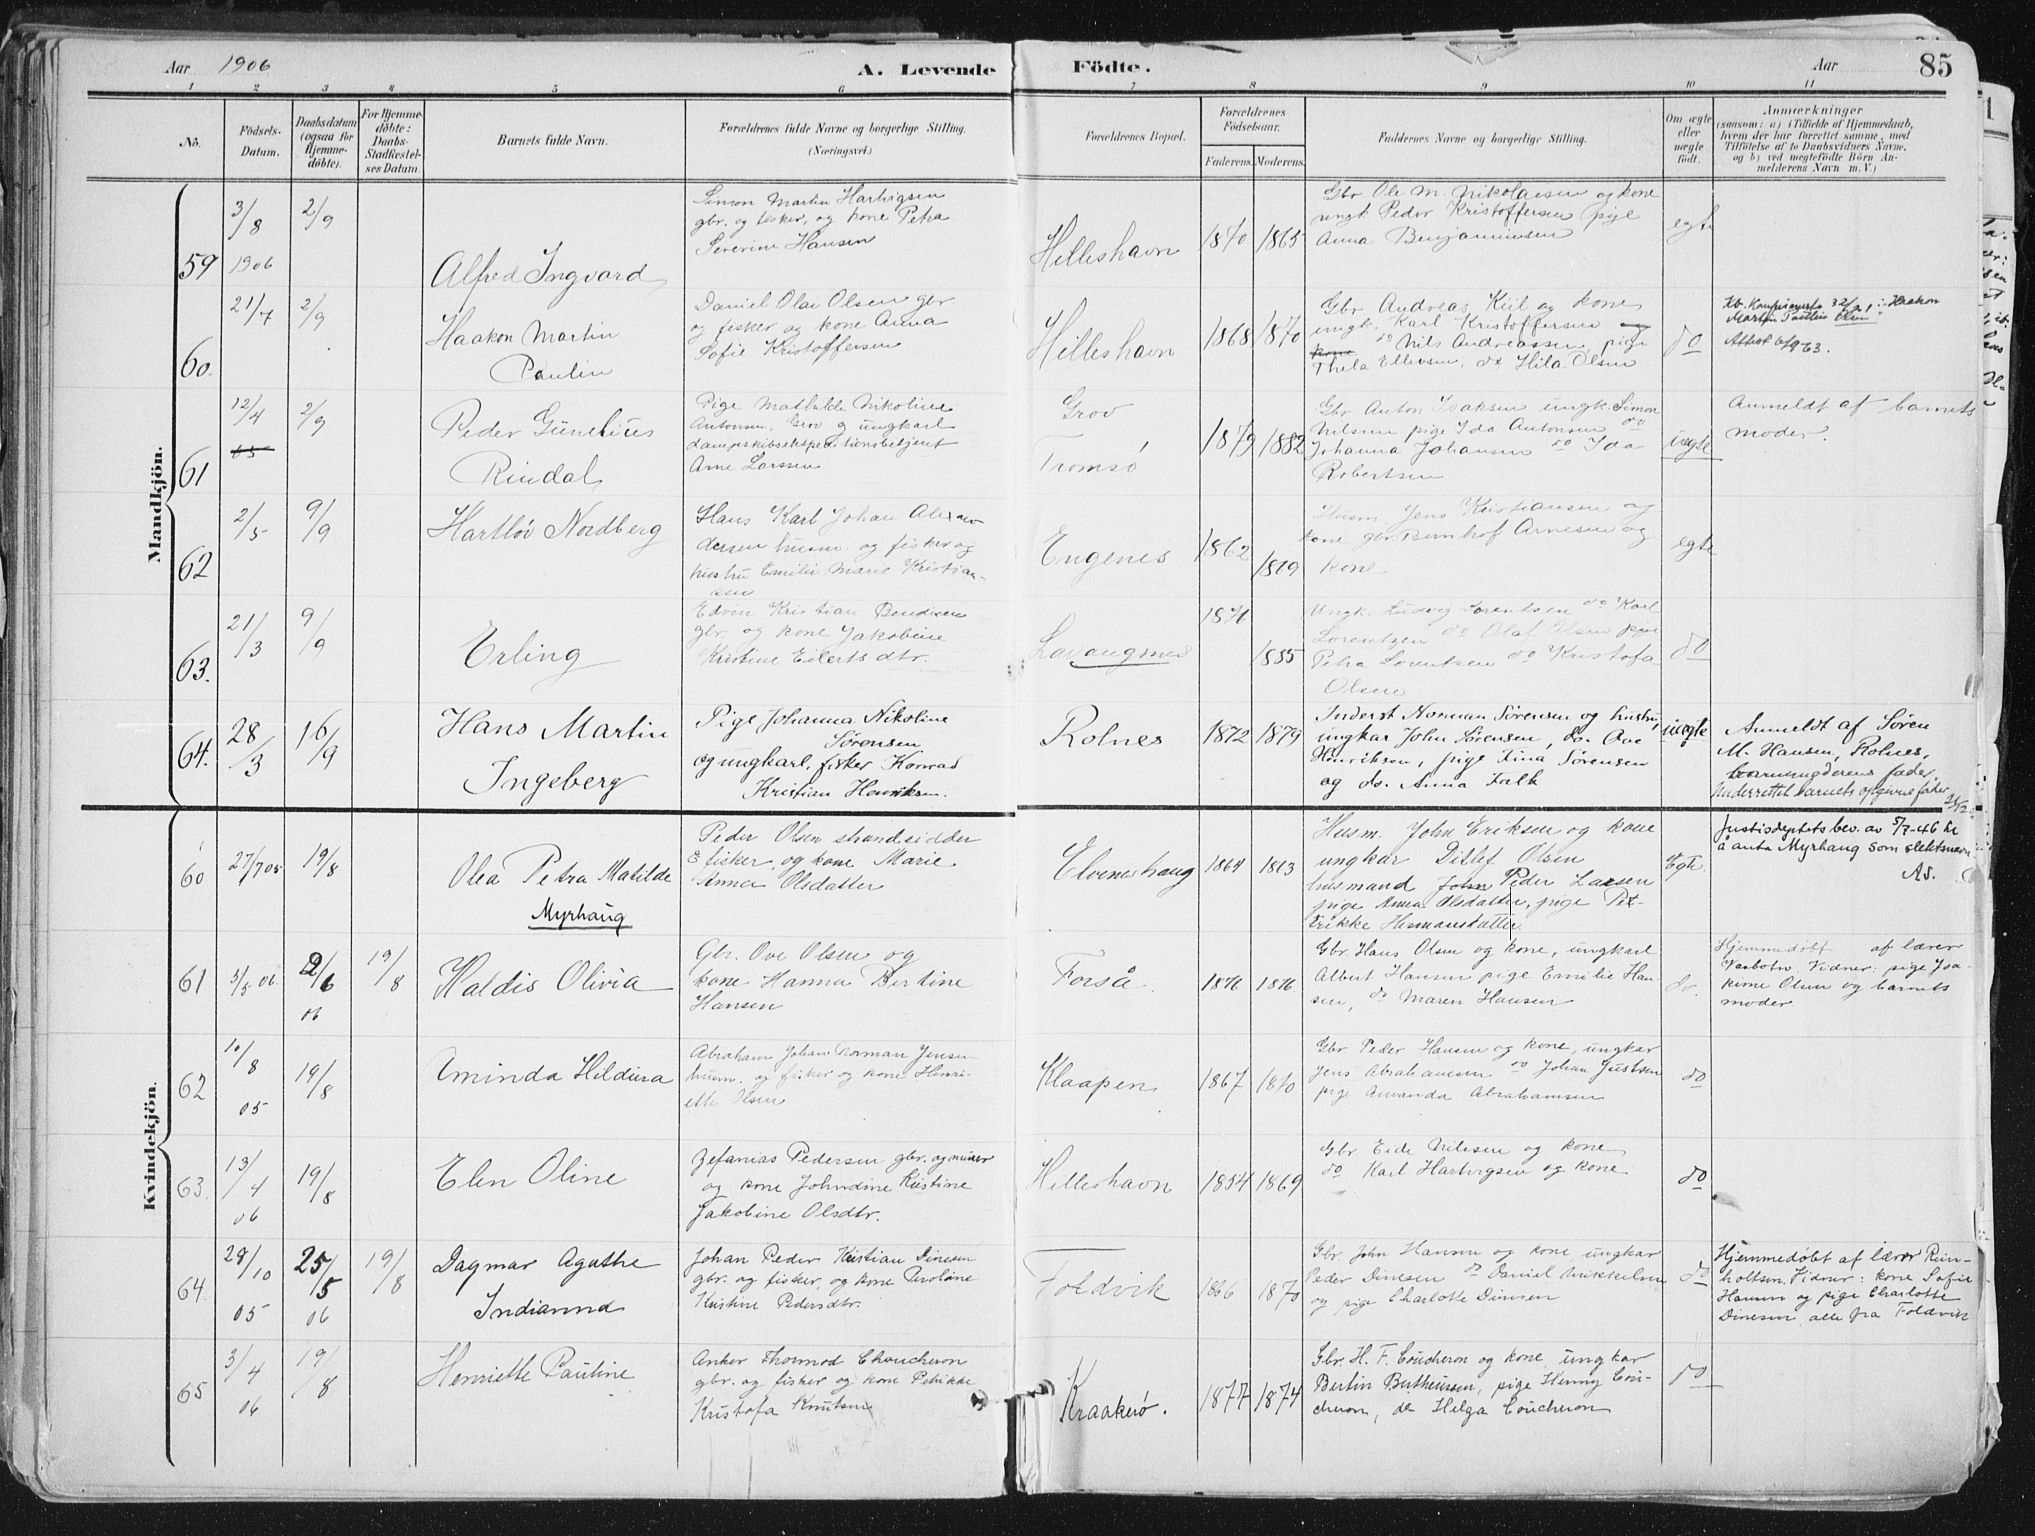 Aar 1906 A. Levende Födte. Aar 85
1 2 3 4 5 6 7 8 9 10 11
No.
Födsels-
Datum.
Daabsdatum
(ogsaa for
Hjemme-
döbte).
For Hjemme-
döbte:
Daabs-
Stadfæstel-
ses Datum.
Barnets fulde Navn.
Forældrenes fulde Navne og borgerlige Stilling.
(Næringsvei.)
Forældrenes Bopæl.
Forældrenes
Födselsaar.
Faderens. Moderens.
Faddernes Navne og borgerlige Stilling.
Om ægte
eller
uægte
födt.
Anmærkninger
(saasom: a) i Tilfælde af Hjemmedaab,
hvem der har forrettet samme, med
Tilföielse af to Daabsvidners Navne,
og b) ved uegtefödte Börn An-
melderens Navn m. V.)
Mandkjön.
59
3/8
1906
2/9
Alfred Ingvard
Simon Martin Hartvigsen
gbr. og fisker, og kone Petra
Severine Hansen
Hilleshavn
1870 1865
Gbr Ole M. Nikolaisen og kone
ungk. Peder Kristoffersen pige
Anna Benjaminsen
egte
60.
21/7
2/9
Haakon Martin
Paulin
Daniel Olai Olsen gbr
og fisker og kone Anna
Sofie Kristoffersen
Hilleshavn
1868 1870
Gbr Andreas Kiil og kone
ungk. Karl Kristoffersen og
kone do Nils Andreassen pige
Thela Ellevsen, do Hila Olsen
do
Martin
61
12/4
05
2/9
Peder Günelius
Rindal
Pige Mathilde Nikoline
Antonsen, Grov og ungkarl
dampskibsekspeditionsbetjent
Arne Larssen
Grov
Tromsö
1879 1882
Gbr Anton Isaksen ungk. Simon
Nilsen pige Ida Antonsen do
Johanna Johansen do Ida
Robertsen
uegte
Anmeldt af barnets
moder.
62
2/5
9/9
Hartlöv Nordberg
Hans Karl Johan Alexan-
dersen husm. og fisker og
hustru Emilie Marie Kristian-
sen
Engenes
1862
Husm. Jens Kristiansen og
kone gbr. Bernhof Arnesen og
kone
egte
63.
21/3
9/9
Erling
Edvin Kristian Bendiksen
gbr. og kone Jakobine
Kristine Eilertsdtr.
Lavangsnes
1871
1885
Ungk. Ludvig Lorentsen do Karl
Lorentzen do Olaf Olsen pige
Petra Lorentsen do Kristofa
Olsen
do
64.
28/3
16/9
Hans Martin
Ingeberg
Pige Johanna Nikoline
Sørensen
og ungkarl, fisker Konrad
Kristian Henriksen.
Rolnes
1872 1879
Inderst Norman Sørensen og hustru,
ungkar John Sørensen, do. Ove
Henriksen, pige Tina Sørensen
og do. Anna Falk
uegte
Anmeldt af Søren
M. Hansen, Rolnes,
barnemoderens fader.
Underrettet barnets opgivne fader
Kvindekjön.
60
27/7 05
19/8
Olea Petra Matilde
Myrhaug
Peder Olsen strandsidder
& fisker og kone Marie
Anna Olsdatter
Elveneshaug
1864 1863
Husm. John Eriksen og kone
ungkar Ditlef Olsen
husmand John Peder Larsen
pige Anna Olsdatter, pige Pet-
rikke Hermansdatter
Egte
Justisdeptets bev. av 5/7-46 til
å anta Myrhaug som slektsnavn
As.
61
3/5 06.
2/6
06
19/8
Waldis Olivia
Gbr. Ove Olsen og
kone Hanna Bertine
Hansen
Forså
1876 1876
Gbr Hans Olsen og kone, ungkarl
Albert Hansen pige Emilie Han-
sen, do Maren Hansen
do.
Hjemmedöbt af lærer
Vidner: pige Joa-
kime Olsen og barnets
moder
62
10/8
05
19/8
Aminda Hildura
Abraham Johan Norman Jensen
husm. og fisker og kone Henri-
ette Olsen
Klaapen
1867 1870
Gbr Peder Hansen og kone, ungkar
Jens Abrahamsen do Johan Justsen
pige Amanda Abrahamsen
do
63.
13/4
06
19/8
Elen Oline
Zefanias Pedersen gbr. og murer
og kone Johndine Kristine
Jakobine Olsdtr.
Hilleshavn
1854 1869
Gbr Eide Nilsen og kone
do Karl Hartvigsen og kone
do
64.
28/10
05
25/5
06
19/8
Dagmar Agathe
Indianna
Johan Peder Kristian Dinesen
gbr. og fisker, og kone
Kristine Pedersdtr.
Foldvik
1866 1870
Gbr John Hansen og kone ungkar
Peder Dinesen do Daniel Mikkelsen
og pige Charlotte Dinesen
do
Hjemmedöbt af lærer Rein-
holtsen. Vidner: kone Sofie
Hansen og pige Charlotte
Dinesen alle fra Foldvik
65
3/4
06
19/8
Henriette Pauline
Anker Thormod Choucheron
gbr. og fisker og kone Petrikke
Kristofa Knutsen
Kraakerö.
1877 1874
Gbr. H. F. Coucheron og kone ungkar
Bertin Bertheussen, pige Henny Cou-
cheron, do Helga Coucheron
do